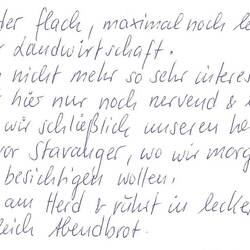 der flach, maximal noch le
r Landwirtschaft.
n nicht mehr so sehr interes
r hier nur noch nervend &
wir schließlich unseren he
vor Stavanger, wo wir morg
besichtigen wollen.
am Herd & rührt in lecker
leich Abendbrot.